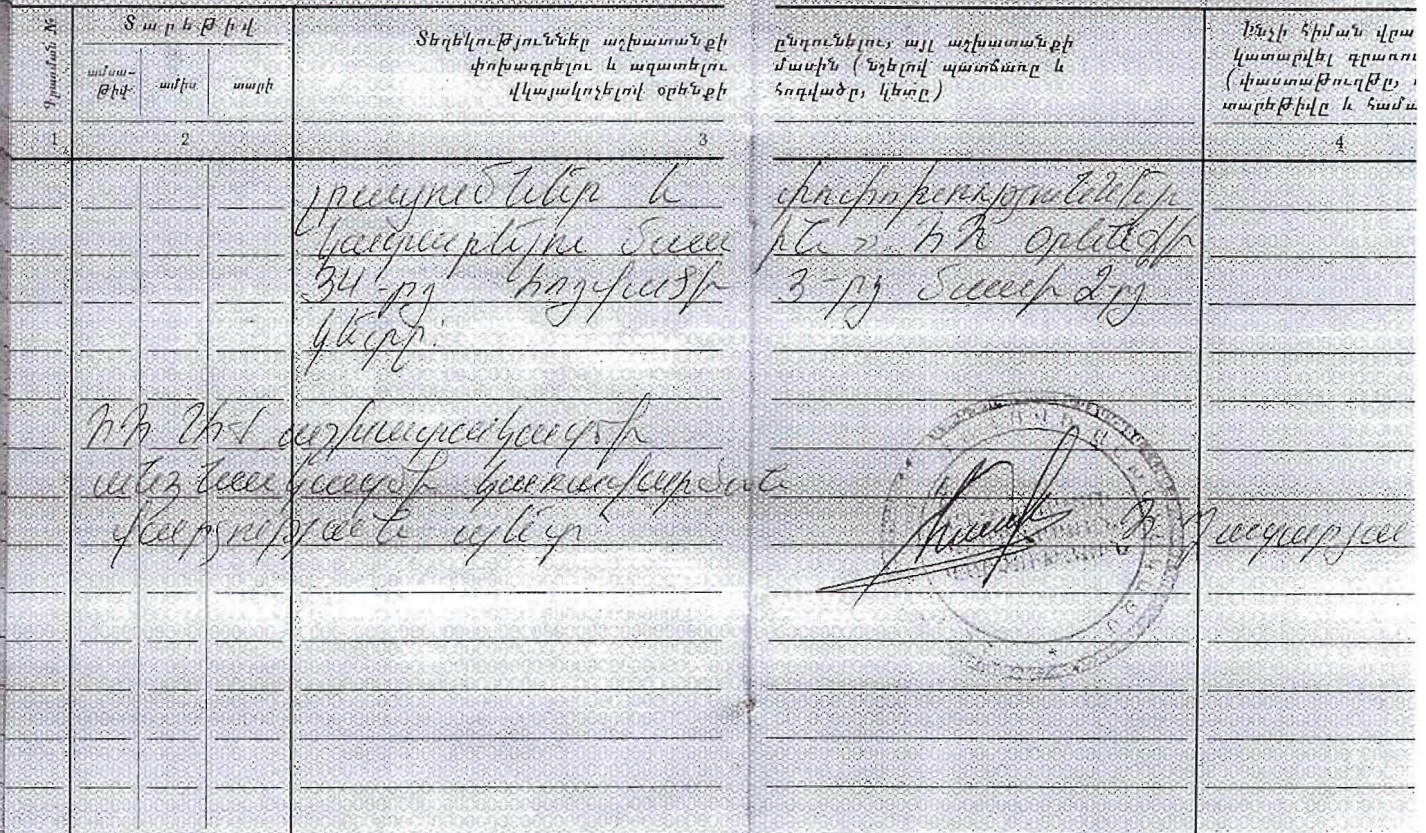 Գրառման №
Տարեթիվ
ամսա-
թիվ
ամիս
տարի
Տեղեկություններ աշխատանքի ընդունելու, այլ աշխատանքի
փոխադրելու և ազատելու մասին (նշելով պատճառը և
վկայակոչելով օրենքի հոդվածը, կետը)
Ինչի հիման վրա
կատարվել գրառու
(փաստաթուղթը,
տարեթիվը և համա
1 2 3 4
լրացումներ և փոփոխություններ
կատարելու մասին» ՀՀ օրենքի
34-րդ հոդվածի 3-րդ մասի 2-րդ
կետը:
ՀՀ ՇԻՆ աշխատակազմի
անձնակազմի կառավարման
վարչության պետ Հ. Ղազարյա